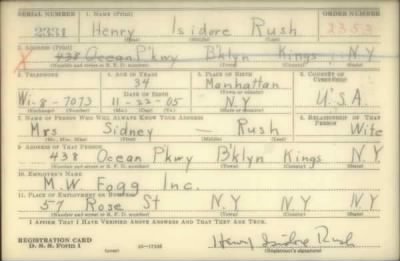 SERIAL NUMBER 1. NAME (Print) ORDER NUMBER
2331 Henry Isidore Rush 2353
2. ADDRESS (Print)
X 438 Ocean Pkwy B'klyn Kings N.Y.
(Number and street or R. F. D. number) (Town) (County) (State)
3. TELEPHONE 4. AGE IN YEARS 5. PLACE OF BIRTH 6. COUNTRY OF CITIZENSHIP
34 Manhattan
DATE OF BIRTH (Town or county)
Wi-8-7073 11-22-05 N.Y. U.S.A.
7. NAME OF PERSON WHO WILL ALWAYS KNOW YOUR ADDRESS 8. RELATIONSHIP OF THAT PERSON
Mrs. Sidney — Rush Wife
(Mr., Mrs., Miss) (First) (Middle) (Last)
9. ADDRESS OF THAT PERSON
438 Ocean Pkwy B'klyn Kings N.Y.
(Number and street or R. F. D. number) (Town) (County) (State)
10. EMPLOYER'S NAME
M.W. Fogg Inc.
11. PLACE OF EMPLOYMENT OR BUSINESS
57 Rose St N.Y. N.Y. N.Y.
(Number and street or R. F. D. number) (Town) (County) (State)
I AFFIRM THAT I HAVE VERIFIED ABOVE ANSWERS AND THAT THEY ARE TRUE.
REGISTRATION CARD
D. S. S. FORM 1 Henry Isidore Rush
(Registrant's signature)